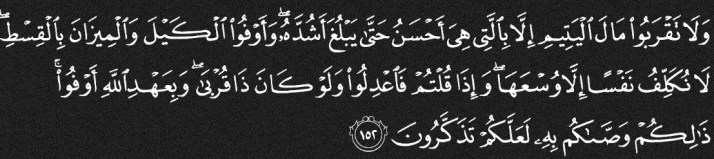 وَلَا تَقْرَبُوا۟ مَالَ ٱلْيَتِيمِ إِلَّا بِٱلَّتِى هِىَ أَحْسَنُ حَتَّىٰ يَبْلُغَ أَشُدَّهُۥ ۖ وَأَوْفُوا۟ ٱلْكَيْلَ وَٱلْمِيزَانَ بِٱلْقِسْطِ ۖ
لَا نُكَلِّفُ نَفْسًا إِلَّا وُسْعَهَا ۖ وَإِذَا قُلْتُمْ فَٱعْدِلُوا۟ وَلَوْ كَانَ ذَا قُرْبَىٰ ۖ وَبِعَهْدِ ٱللَّهِ أَوْفُوا۟ ۚ
ذَٰلِكُمْ وَصَّىٰكُم بِهِۦ لَعَلَّكُمْ تَذَكَّرُونَ ١٥٢